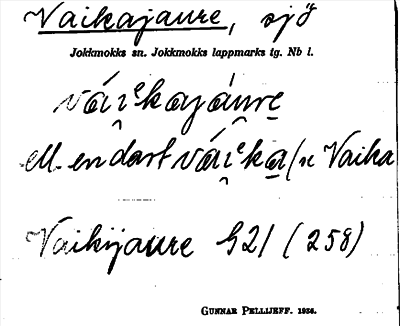 Vaikajaure, sjö
Jokkmokks sn. Jokkmokks lappmarks tg. Nb l.
vái̯ᵉkajáu̯re̮
ell. endast vái̯ᵉka̮ (se Vaika
Vaikijaure G21 (258)
GUNNAR PELLIJEFF. 1936.